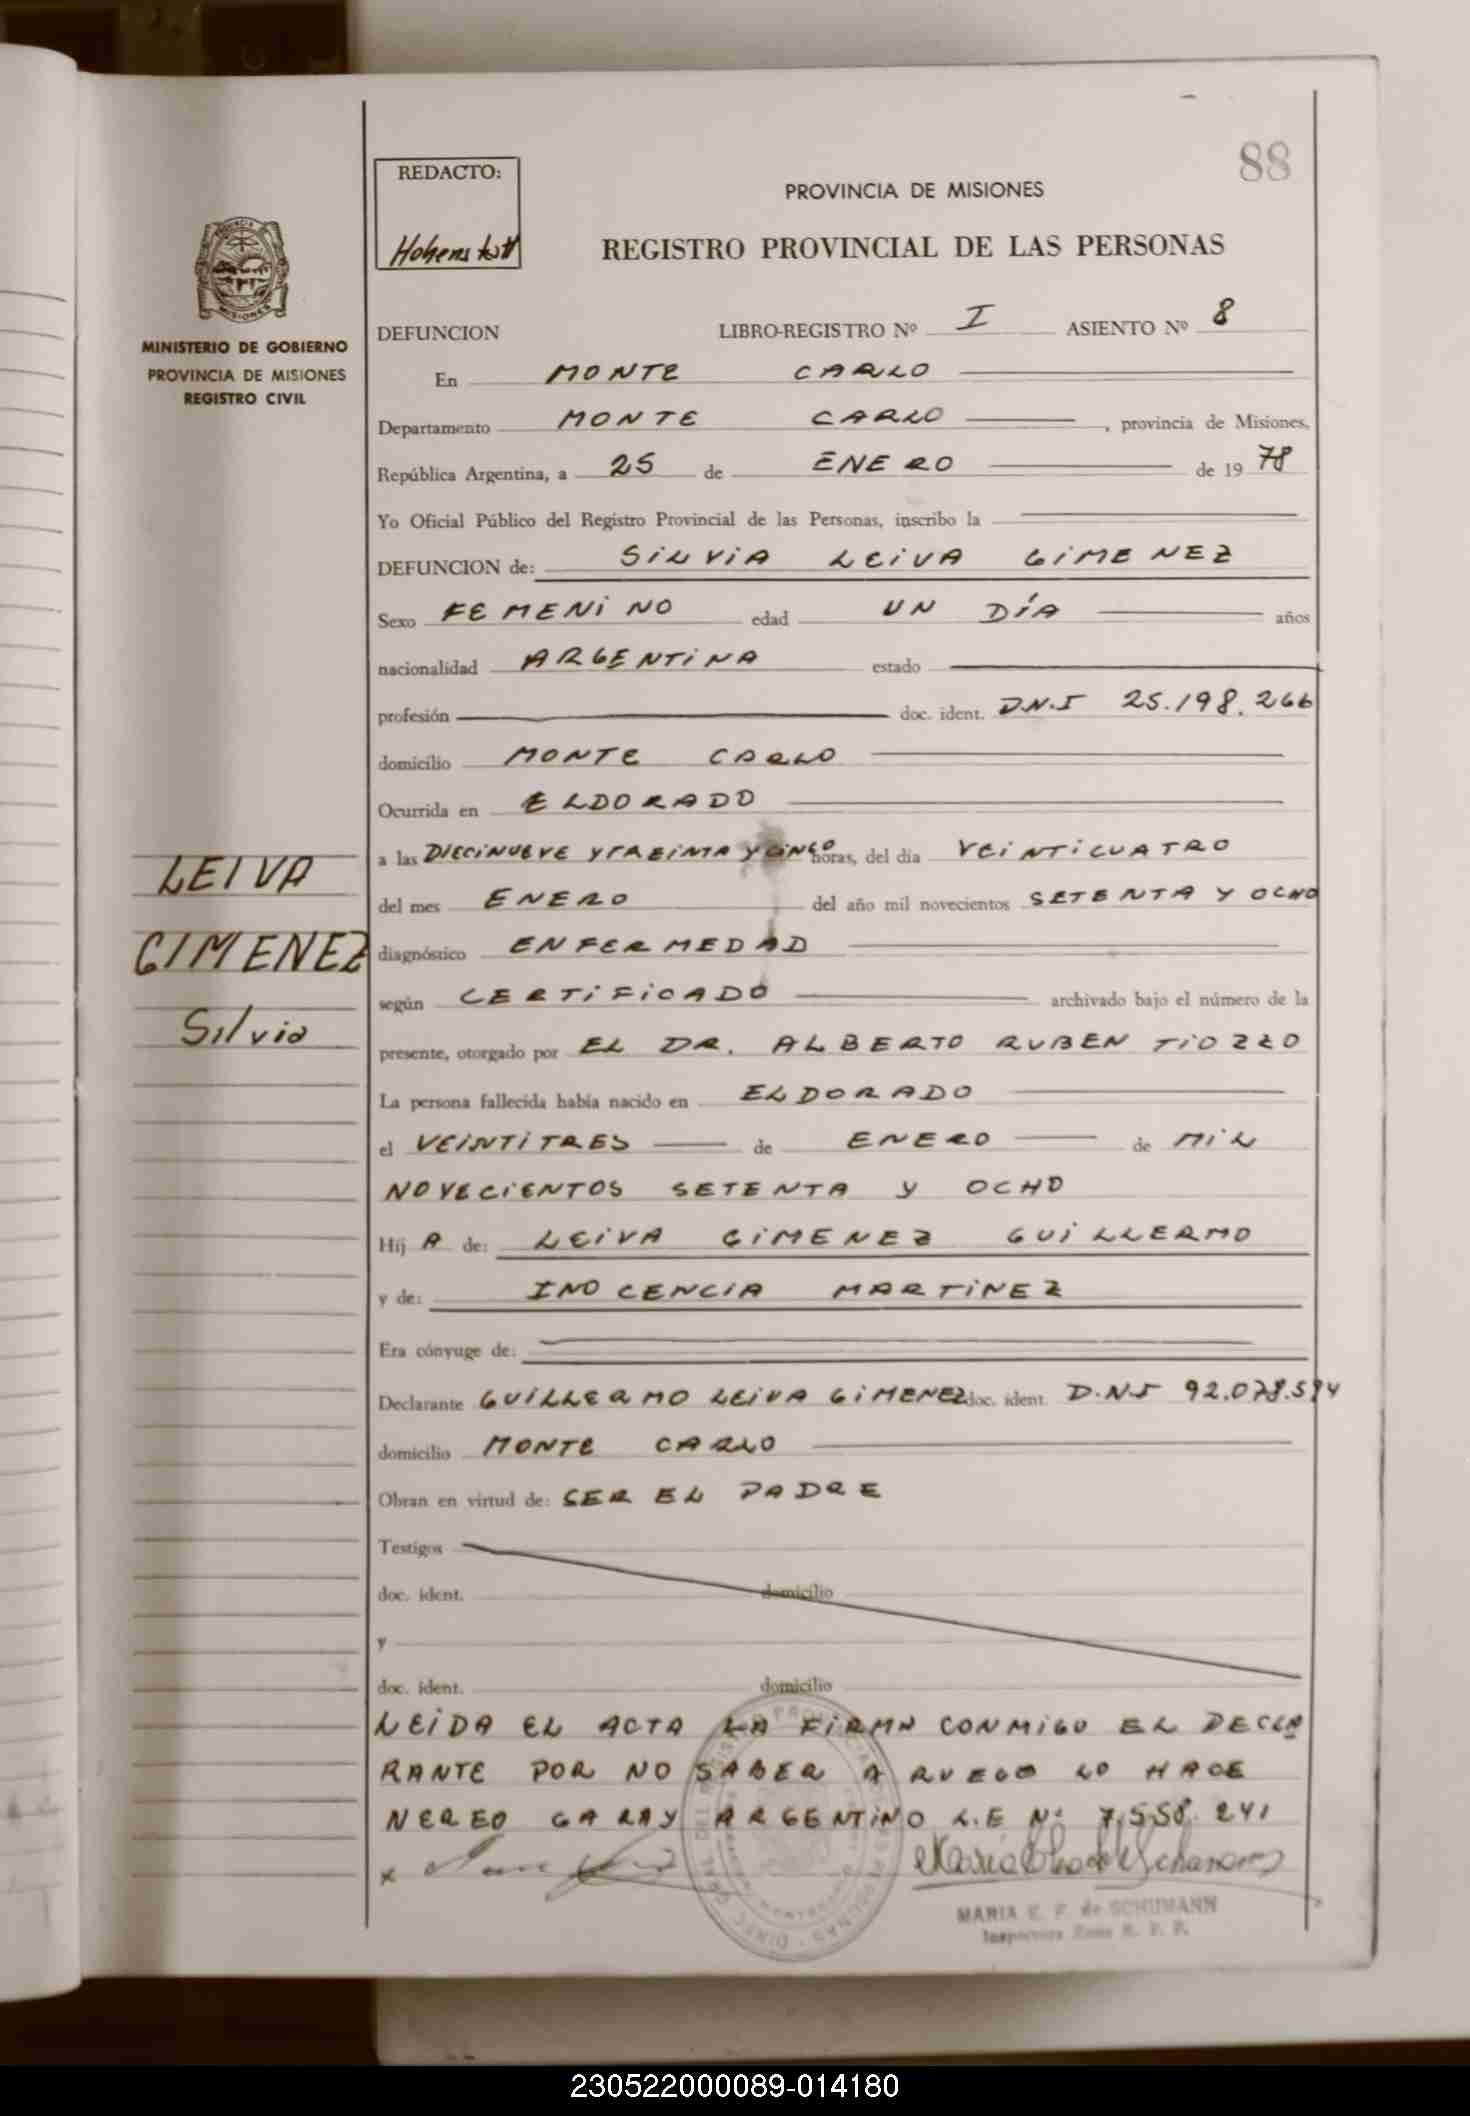 88
REDACTO:
PROVINCIA DE MISIONES
REGISTRO PROVINCIAL DE LAS PERSONAS
MINISTERIO DE GOBIERNO
PROVINCIA DE MISIONES
REGISTRO CIVIL
DEFUNCION LIBRO-REGISTRO Nº I ASIENTO Nº 8
En MONTE CARLO
Departamento MONTE CARLO, provincia de Misiones,
República Argentina, a 25 de ENERO de 19 78
Yo Oficial Público del Registro Provincial de las Personas, inscribo la
DEFUNCION de: SILVIA LEIVA GIMENEZ
Sexo FEMENINO edad UN DÍA años
nacionalidad ARGENTINA estado
profesión doc. ident. D.N.I 25.198.266
domicilio MONTE CARLO
Ocurrida en ELDORADO
a las DIECINUEVE Y TREINTA Y CINCO horas, del día VEINTICUATRO
del mes ENERO del año mil novecientos SETENTA Y OCHO
diagnóstico ENFERMEDAD
según CERTIFICADO archivado bajo el número de la
presente, otorgado por EL DR. ALBERTO RUBEN TIOZZO
La persona fallecida había nacido en ELDORADO
el VEINTITRES de ENERO de MIL
NOVECIENTOS SETENTA Y OCHO
Hij A de: LEIVA GIMENEZ GUILLERMO
y de: INOCENCIA MARTINEZ
Era cónyuge de:
Declarante GUILLERMO LEIVA GIMENEZ doc. ident. D.N.I 92.078.594
domicilio MONTE CARLO
Obran en virtud de: SER EL PADRE
Testigos
doc. ident. domicilio
y
doc. ident. domicilio
LEIDA EL ACTA LA FIRMA CONMIGO EL DECLA
RANTE POR NO SABER A RUEGO LO HACE
NEREO GARAY ARGENTINO L.E Nº 7.558.241
MARIA E. F. de SCHUMANN
Inspectora Zona R. P. P.
LEIVA
GIMENEZ
Silvia
230522000089-014180